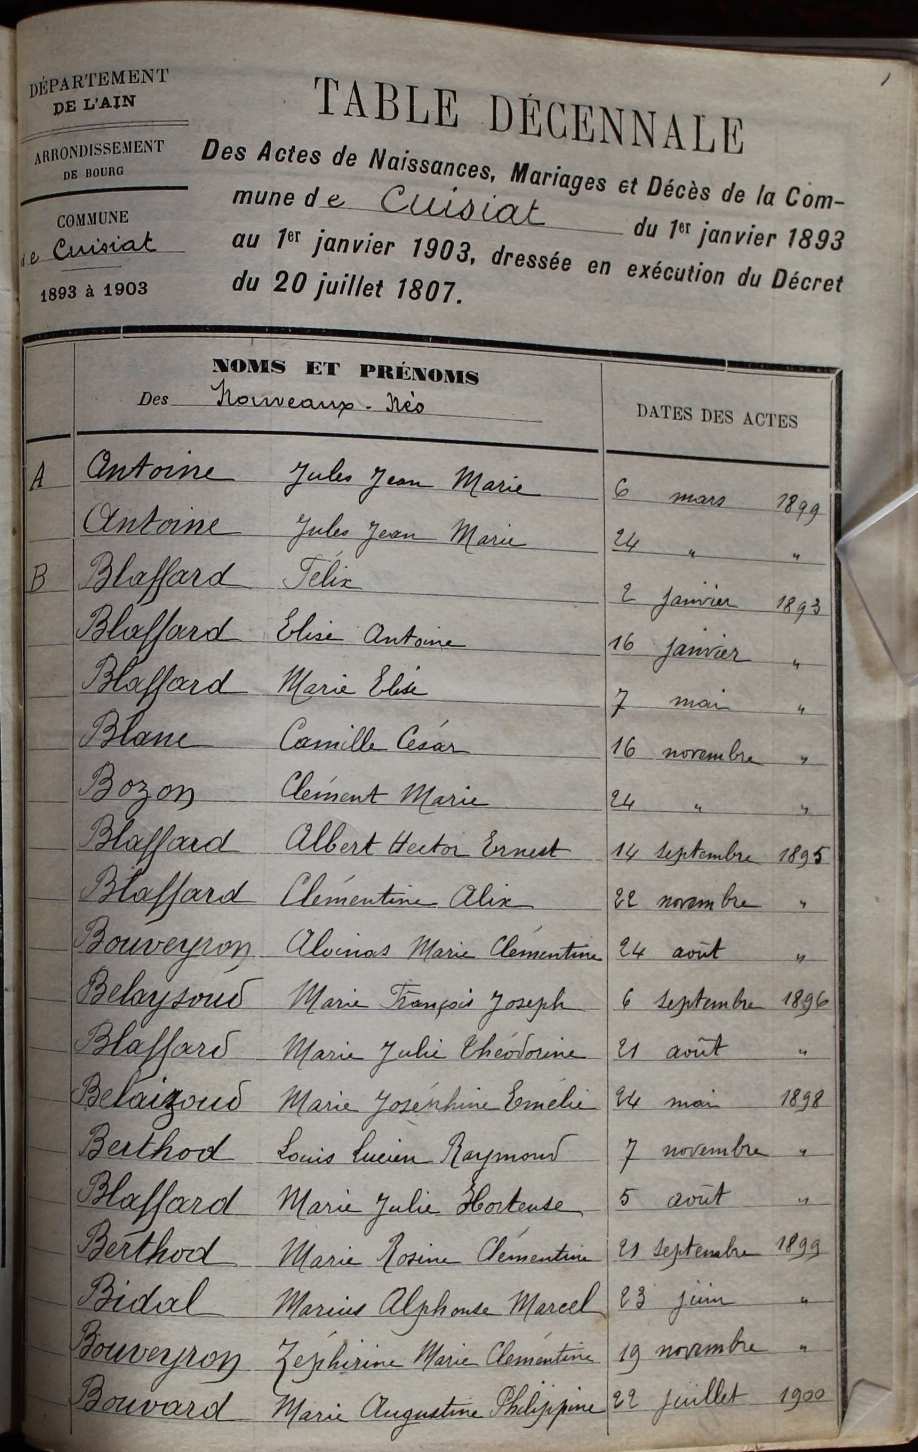 1
DÉPARTEMENT
DE L'AIN
ARRONDISSEMENT
DE BOURG
COMMUNE
de Cuisiat
1893 à 1903
TABLE DÉCENNALE
Des Actes de Naissances, Mariages et Décès de la Com-
mune de Cuisiat du 1er janvier 1893
au 1er janvier 1903, dressée en exécution du Décret
du 20 juillet 1807.
NOMS ET PRÉNOMS
Des Nouveaux-Nés
DATES DES ACTES
A Antoine Jules Jean Marie 6 mars 1899
Antoine Jules Jean Marie 24 " "
B Blaffard Félix 2 janvier 1893
Blaffard Elise Antoine 16 janvier "
Blaffard Marie Elise 7 mai "
Blanc Camille César 16 novembre "
Bozon Clément Marie 24 " "
Blaffard Albert Hector Ernest 14 septembre 1895
Blaffard Clémentine Alix 22 novembre "
Bouveyron Marie Clémentine 24 août "
Belaysoud Marie François Joseph 6 septembre 1896
Blaffard Marie Julie Théodorine 21 août "
Belaizoud Marie Joséphine Emélie 24 mai 1898
Berthod Louis Lucien Raymond 7 novembre "
Blaffard Marie Julie Hortense 5 août "
Berthod Marie Rosine Clémentine 21 septembre 1899
Bidal Marius Alphonse Marcel 23 juin "
Bouveyron Zéphirine Marie Clémentine 19 novembre "
Bouvard Marie Augustine Philippine 22 juillet 1900